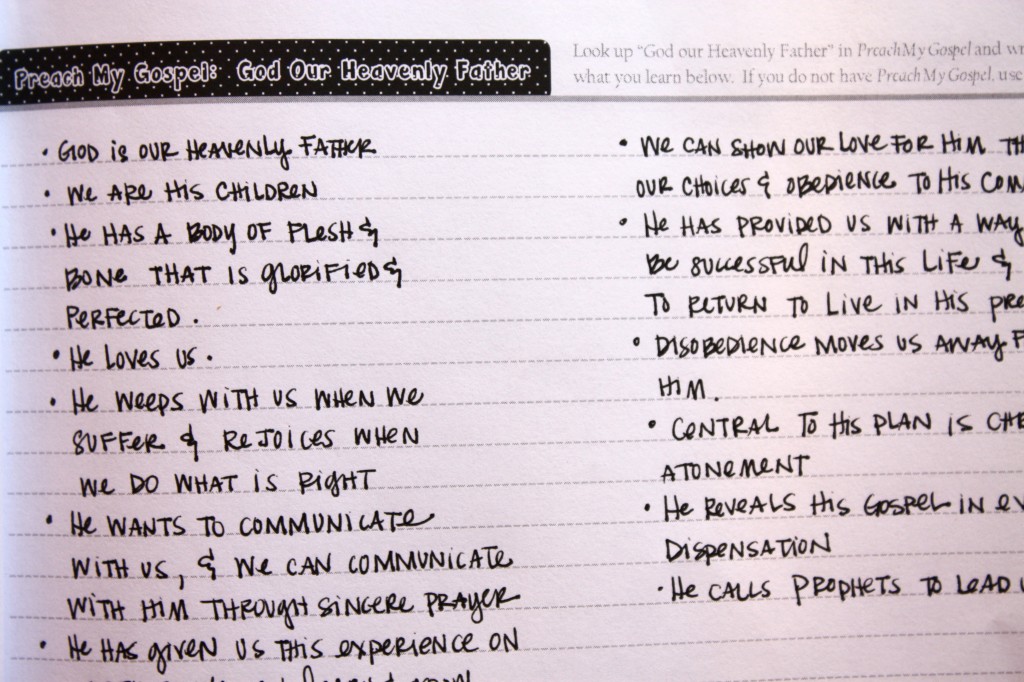 Preach My Gospel: God Our Heavenly Father
Look up "God our Heavenly Father" in Preach My Gospel and
what you learn below. If you do not have Preach My Gospel, use
• God is our Heavenly Father
• We are His children
• He has a body of flesh &
bone that is glorified &
perfected.
• He loves us.
• He weeps with us when we
suffer & rejoices when
we do what is right
• He wants to communicate
with us, & we can communicate
with Him through sincere prayer
• He has given us this experience on
• We can show our love for Him
our choices & obedience to His
• He has provided us with a way
be successful in this life &
to return to live in His
• Disobedience moves us away
Him.
• Central to His plan is
Atonement
• He reveals His Gospel in
Dispensation
• He calls prophets to lead